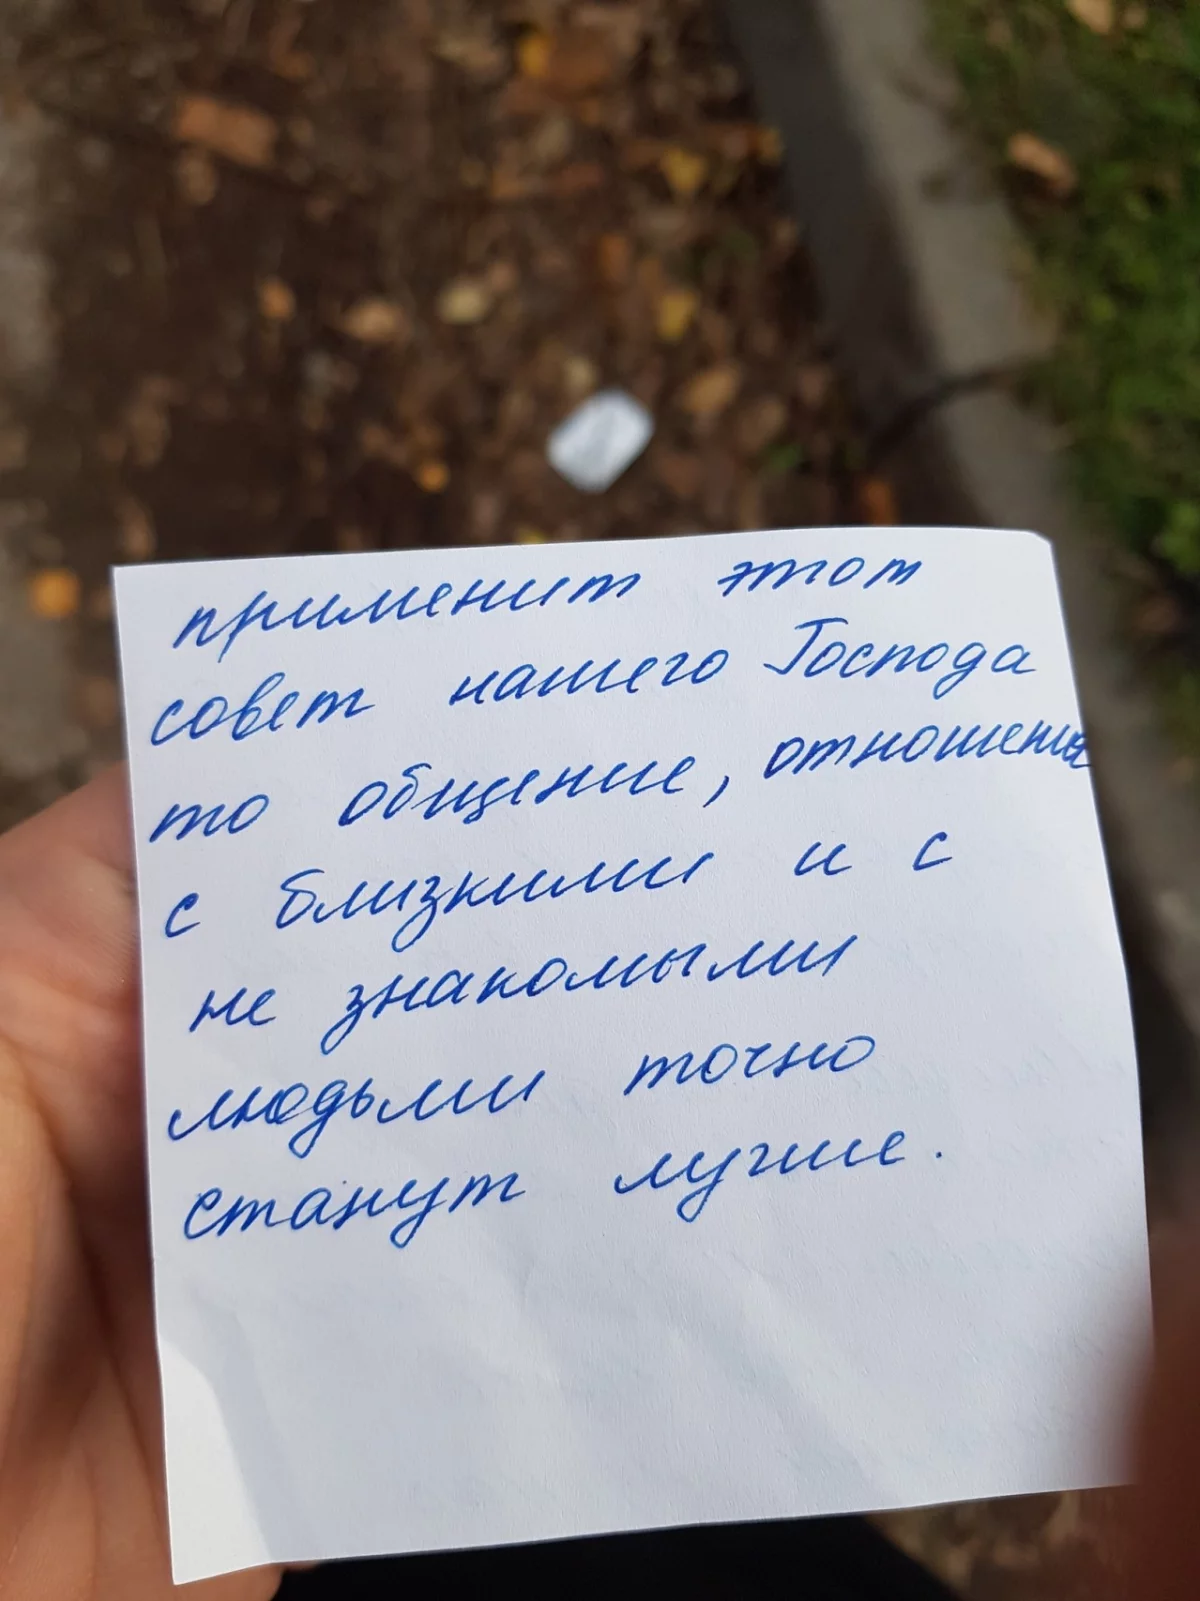 применит этот
совет нашего Господа
то общение, отношения
с близкими и с
не знакомыми
людьми точно
станут лучше.